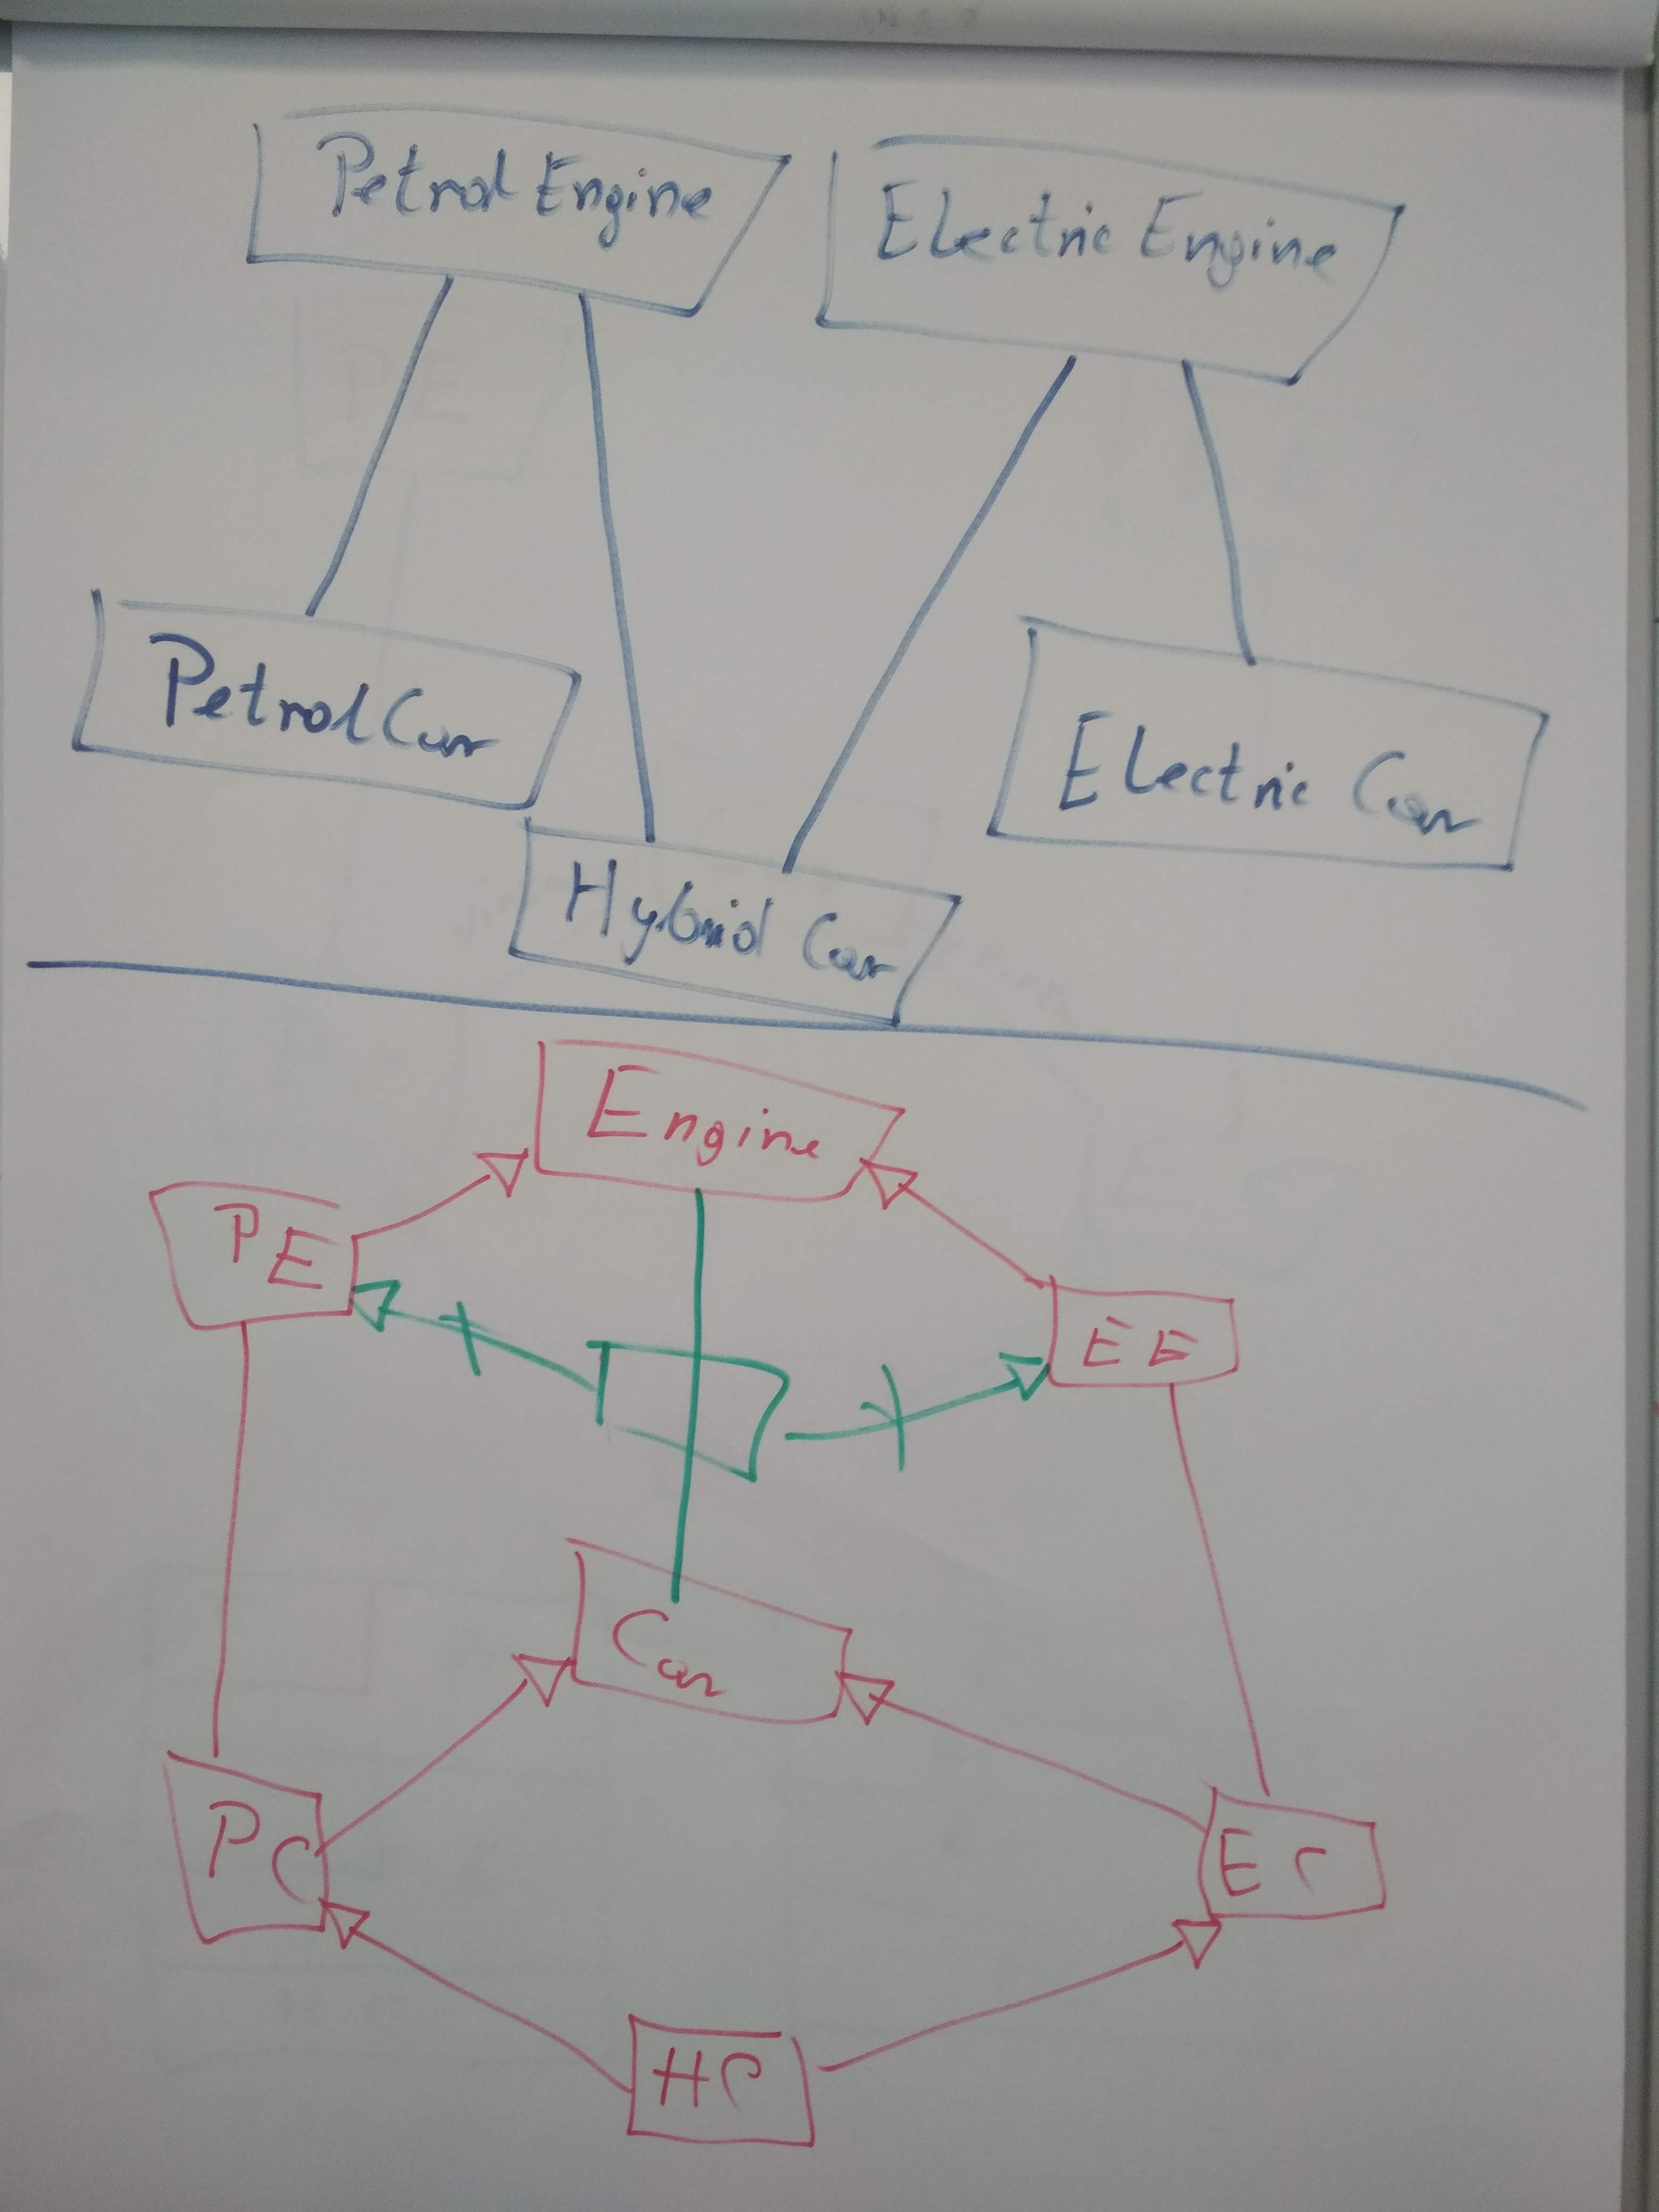 Petrol Engine
Electric Engine
Petrol Car
Electric Car
Hybrid Car
Engine
PE
EE
Car
PC
EC
HC